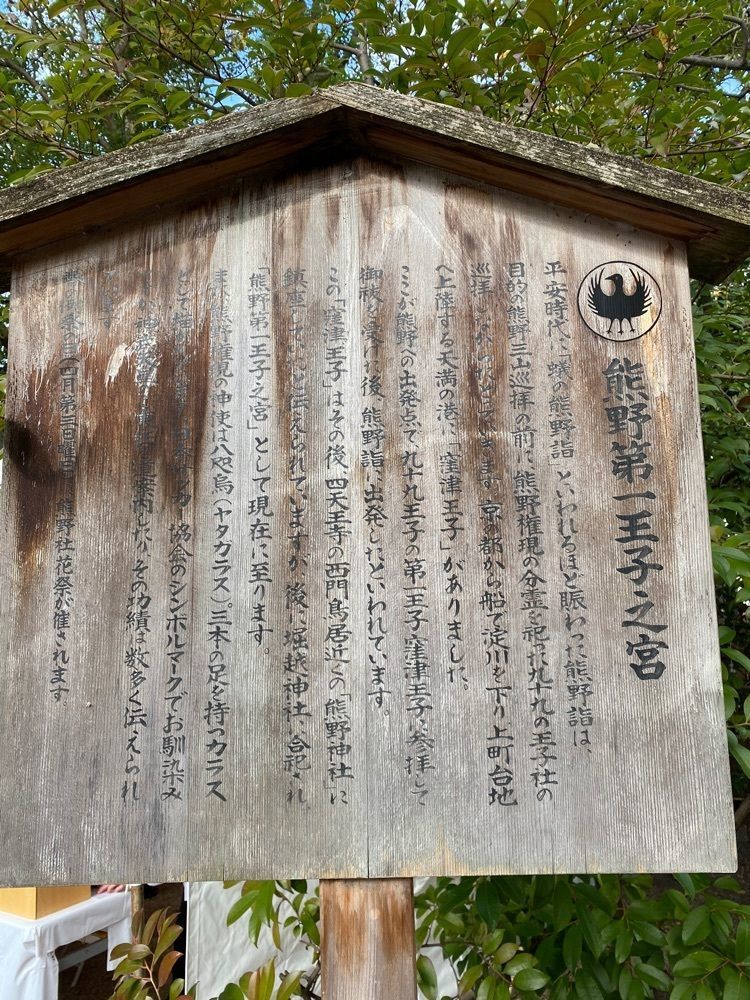 熊野第一王子之宮
平安時代に「蟻の熊野詣」といわれるほど賑わった熊野詣は、
目的の熊野三山巡拝の前に、熊野権現の分霊を祀った九十九の王子社の
巡拝 京都から船で淀川を下り上町台地
へ上陸する天満の港に「窪津王子」がありました。
ここが熊野への出発点で、九十九王子の第一王子窪津王子に参拝して
御祓を受けた後、熊野詣に出発したといわれています。
この「窪津王子」はその後、四天王寺の西門鳥居近くの「熊野神社」に
鎮座していたと伝えられていますが、後に堀越神社に合祀され
「熊野第一王子之宮」として現在に至ります。
また、熊野権現の神使は八咫烏(ヤタカラス)。三本の足を持つカラス
として 協会のシンボルマークでお馴染み
道案内したり、その功績は数多く伝えられ
ています。
四月第三日曜日に熊野社花祭が催されます。